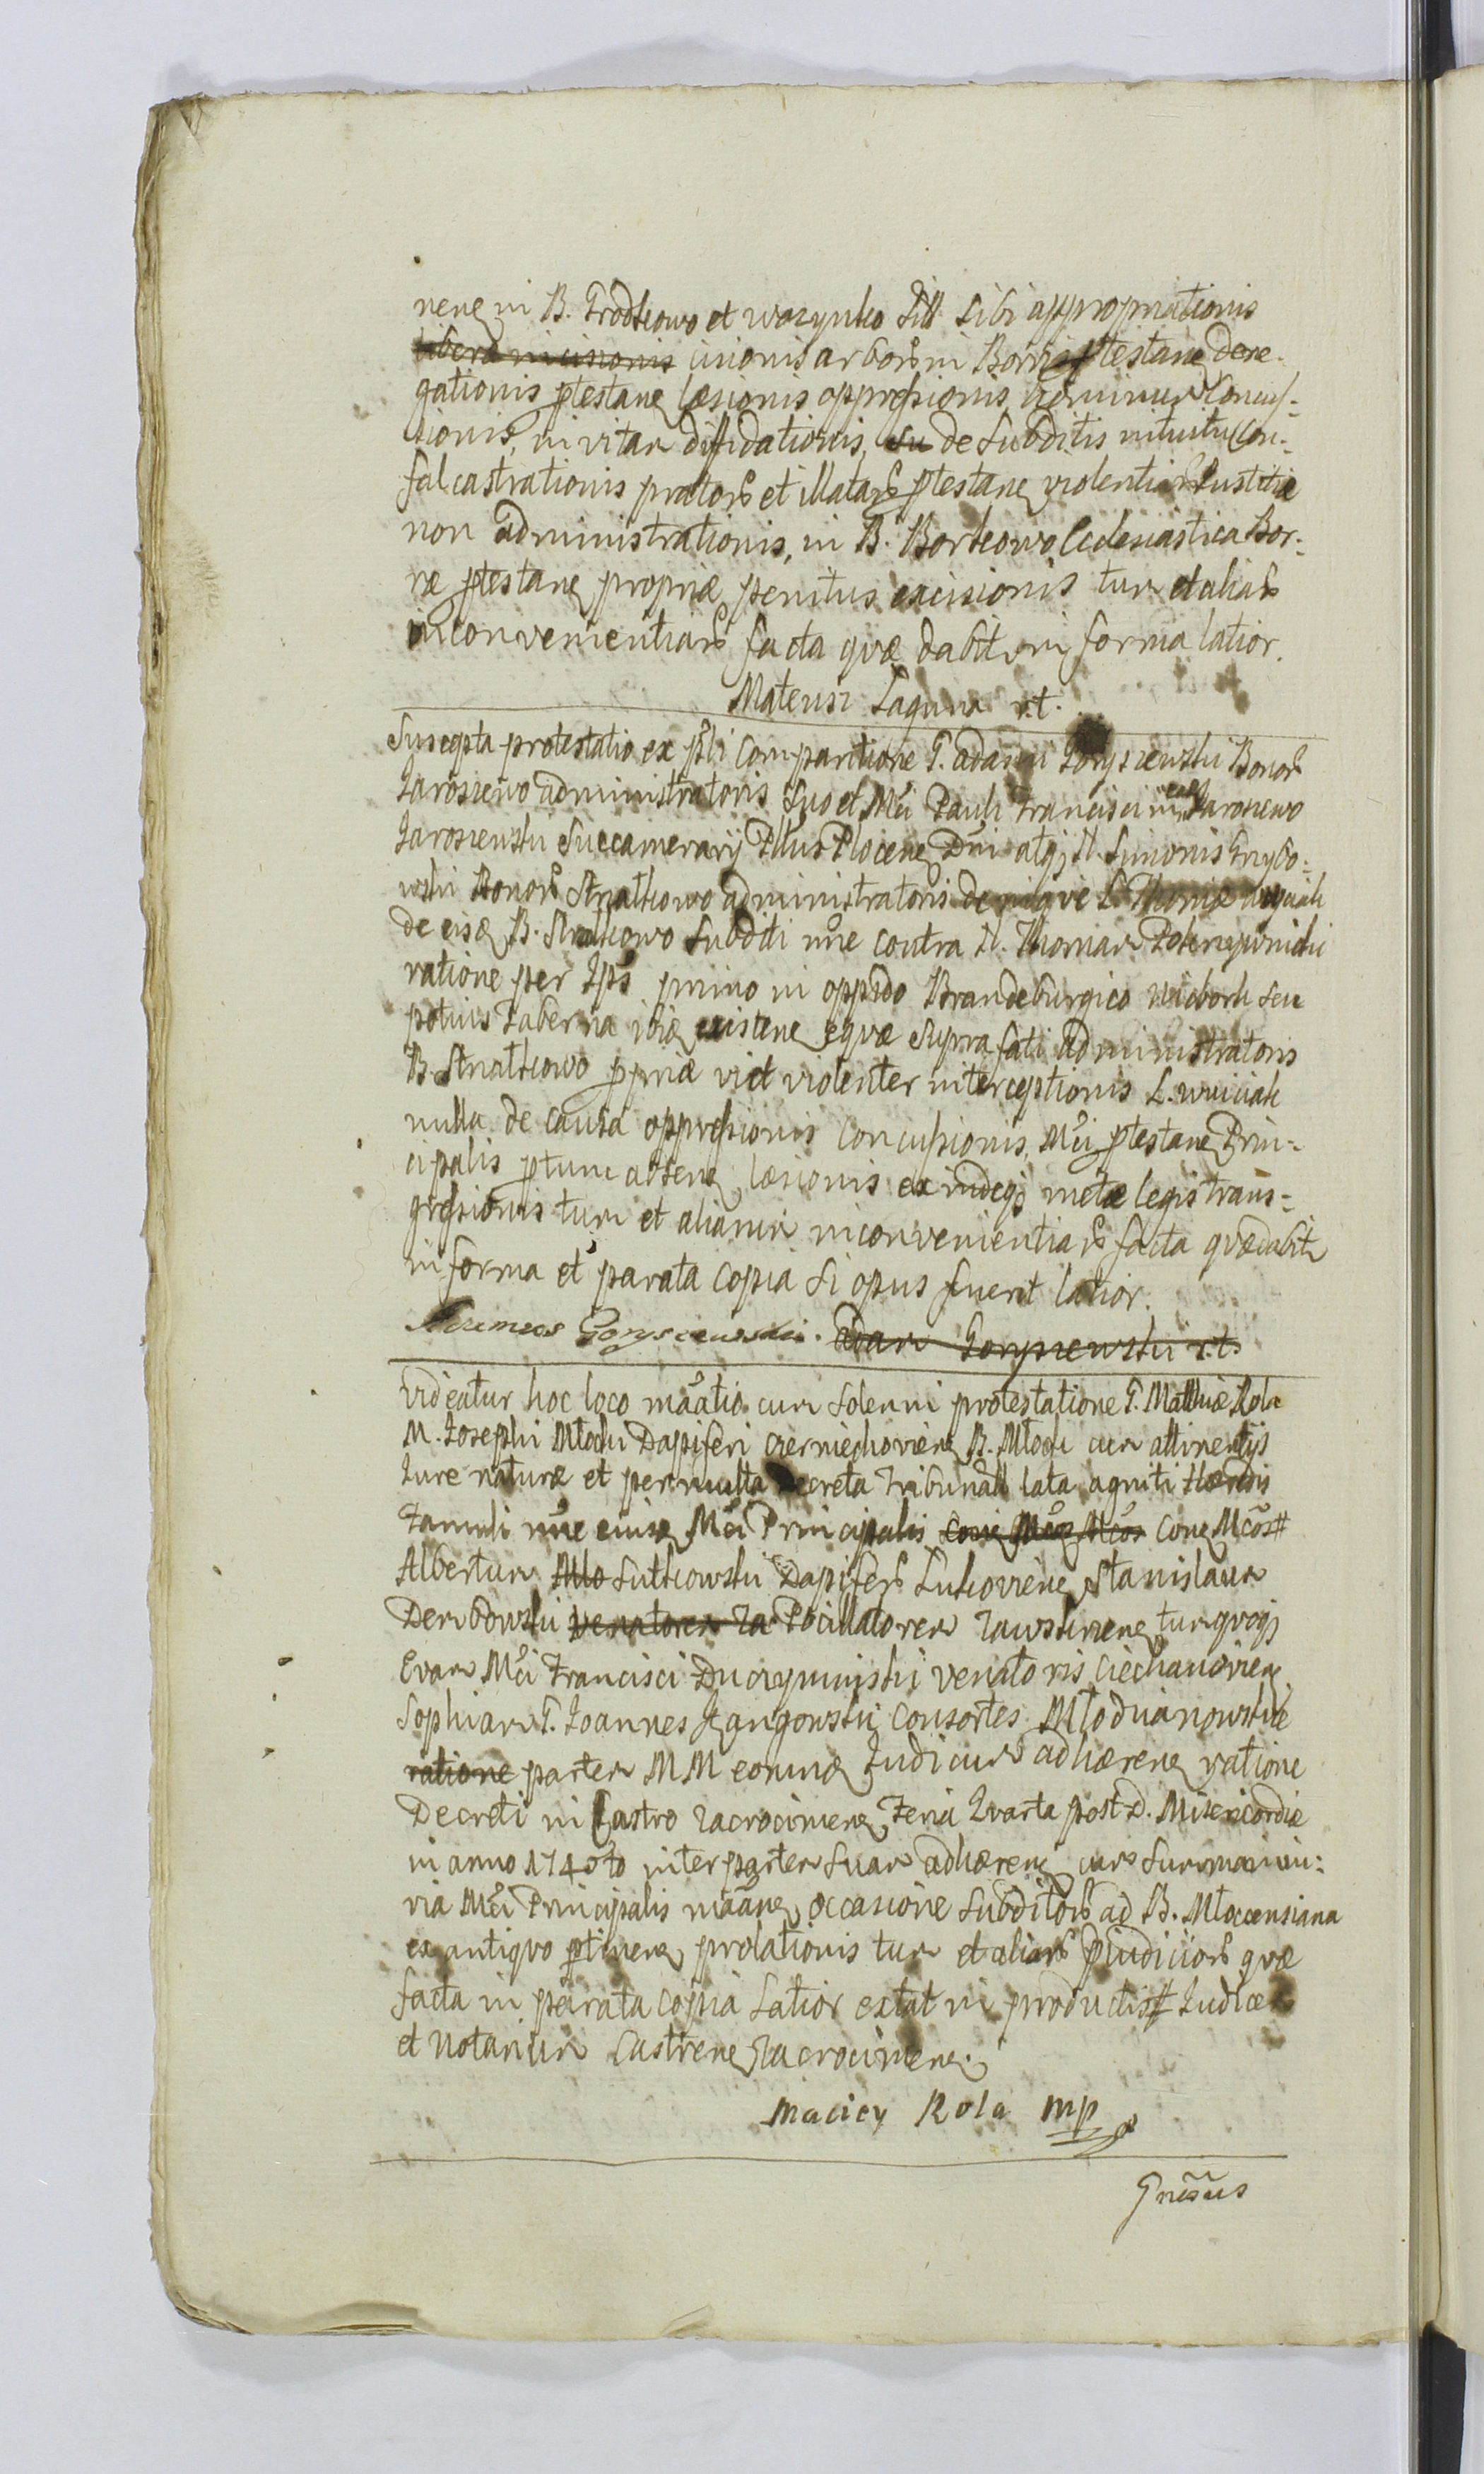 nene in B. Grodkowo et wozynko Sill Sibi appropriationis
libera incisionis cisionis arbor in Borra ptestane dene-
gationis ptestane læsionis oppressionis hominum Concus-
sionis, in vitam diffidationis, su de Subditis intuitu Con-
falcastrationis prator et illatar ptestane violentiar Justitiæ
non administrationis, in B. Borkowo Ecclesiastica Bor-
ræ ptestane propriæ penitus excisionis tum et aliar
inconvenientiar facta qvæ dabit in forma latior.
Mateusz Laguna r.t.
Suscepta protestatio ex psli comparitione G. adami Goryszewski Bonor
Jaroszewo administratoris Suo et Mci Pauli Francisci in ead Jaroszewo
Jaroszewski Succamerarij Pllus Plocene Dni atq N. Simonis Grzybo-
wski Bonor Stratkowo administratoris deniqve L. Thomæ
de eisd B. Stratkowo Subditi nne contra N. Thomam
ratione per Ips primo in oppido Brandeburgico seu
potius Taberna ibiq existene eqvæ Suprafati administratoris
B. Stratkowo ppriæ vi et violenter interceptionis L.
nulla de causa oppressionis concussionis, Mci ptestane Prin-
cipalis ptunc absene læsionis exindeq metæ legis trans-
gressionis tum et aliarum inconvenientiar facta qvæ dabit
in forma et parata copia Si opus fuerit latior.
Goryszewski. Adam Goryszewski r.t.
Videatur hoc loco maatio cum Solenni protestatione G. Mathiæ Rola
M. Josephi Mlocki Dapiferi czerniechoviene B. Mlock cum attinentijs
Jure naturæ et per multa Decreta Tribunall lata agniti Hæredis
Famuli nne eiusd Mci Principalis Cone Mcos Mcos Cone Mcos #
Albertum Mlo Sutkowski Dapifer Lukoviene Stanislaum
Dembowski Venatorem za Pocillatorem zawskrzene tum qvoq
Evam Mci Francisci Duczyminski venatoris Ciechanoviene
Sophiam G. Joannes consortes Mlodzianowskie
ratione partem MM eorumd Judicium adhærene ratione
Decreti in Castro zacrocimene Feria Qvarta post D. Misericordiæ
in anno 1740to inter partem Suam adhærene cum Summa iniu-
ria Mci Principalis maane, occasione Subditor ad B. Mloccensiana
ex antiqvo ptinene prolationis tum et aliar pjudicior qvæ
facta in parata copia Latior extat in productis # Judicem
et Notarium Castrene zacrocimene.
Maciey Rola mp
Gnesus